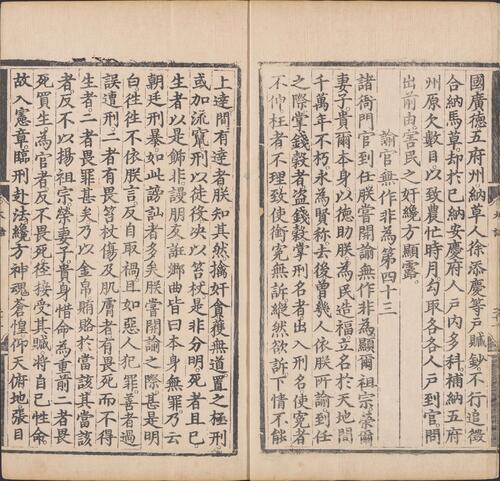 國廣德五府州納草人徐添慶等戶贓鈔不行追徵
合納馬草却於已納安慶府人戶內多科補納五府
州原欠數目以致農忙時月勾取各各人戶到官問
出前由害民之奸纔方顯露
諭官無作非為第四十三
諸衙門官到任朕嘗開諭無作非為顯爾祖宗榮爾
妻子貴爾本身以德助朕為民造福立名於天地間
千萬年不朽永為賢稱去後曾幾人依朕所諭到任
之際掌錢穀者盗錢穀掌刑名者出入刑名使冤者
不伸枉者不理致使衘冤無訴縱然欲訴下情不能
上達間有達者朕知其然擒奸貪獲無道置之極刑
或加流竄刑以徒役决以笞杖是非分明死者且已
生者以是飾非謾朋友誑鄉曲皆曰本身無罪乃云
朝廷刑暴如此謗訕者多矣朕嘗開諭之際甚是明
白徃徃不依朕言反自取禍且如惡人犯罪善者過
誤遭刑二者有畏笞杖傷及肌膚者有畏死而不得
生者二者畏罪甚矣乃以金帛賄賂於當該其當該
者反不以揚祖宗榮妻子貴身惜命為重前二者畏
死買生為官者反不畏死徑接受其贓將自己性命
故入憲章臨刑赴法纔方神魂蒼惶仰天俯地張目